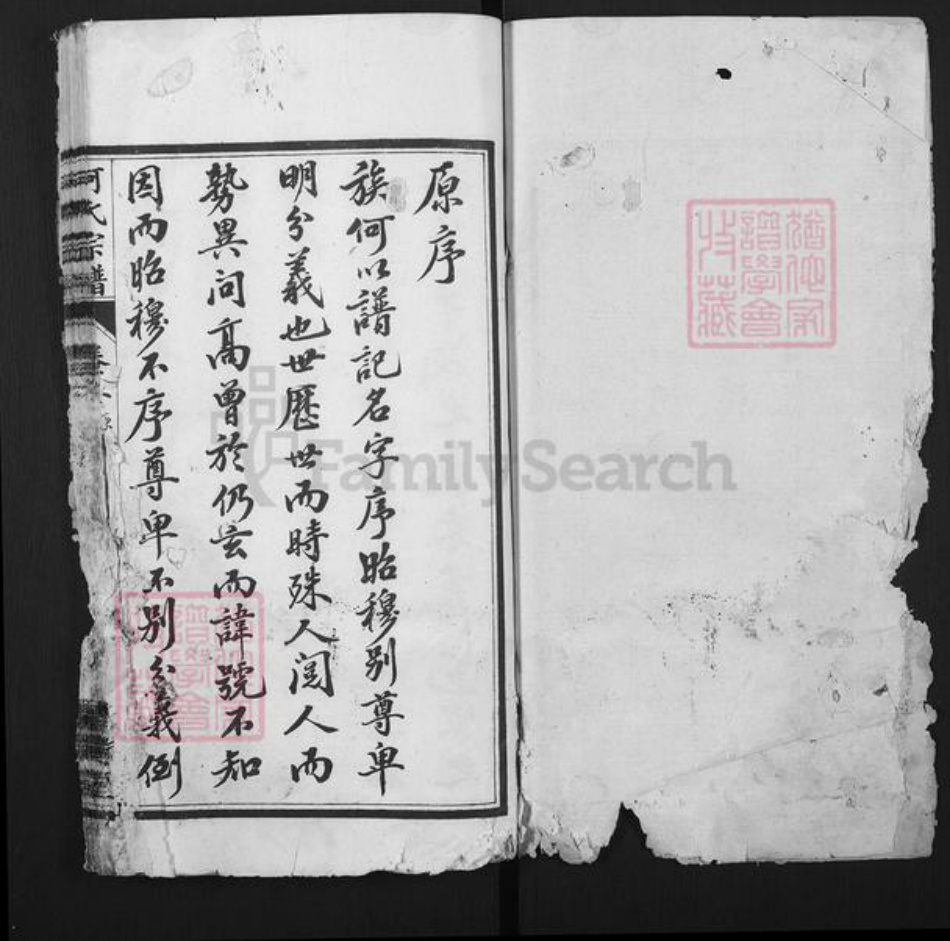 原序
族何以譜記名字序昭穆別尊卑
明分義也世歷世而時殊人閱人而
勢異问高曾於仍玄而諱號不知
因而昭穆不序尊卑不别分義倒
何氏宗譜
卷
譜學會
收藏
FamilySearch